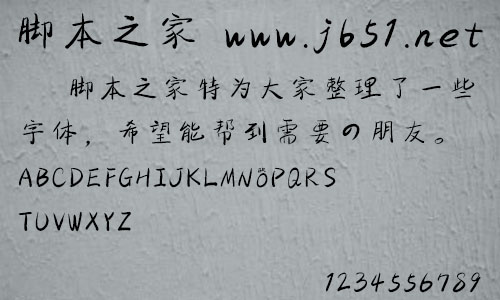 脚本之家 www.jb51.net
脚本之家特为大家整理了一些
字体，希望能帮到需要の朋友。
ABCDEFGHIJKLMNÖPQRS
TUVWXYZ
1234556789